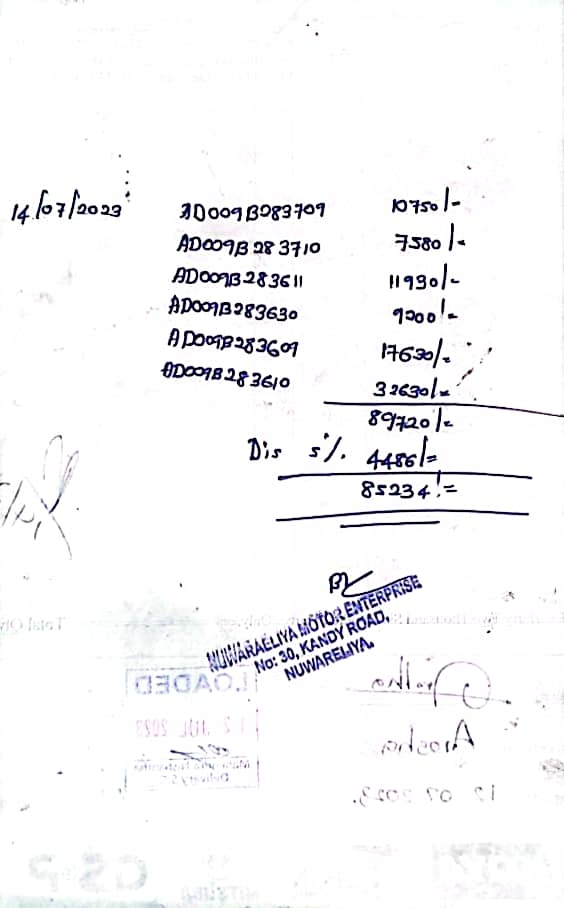 14/07/2023 AD009B283709 10750/-
AD009B283710 7580/-
AD009B283611 11930/-
AD009B283630 9200/-
AD009B283609 17630/=
AD009B283610 32630/=
89720/=
Dis 5%. 4486/=
85234/=
NUWARAELIYA MOTOR ENTERPRISE
No: 30, KANDY ROAD,
NUWARELIYA.
Total Qty
LOADED
12 JUL 2023
12 07 2023.